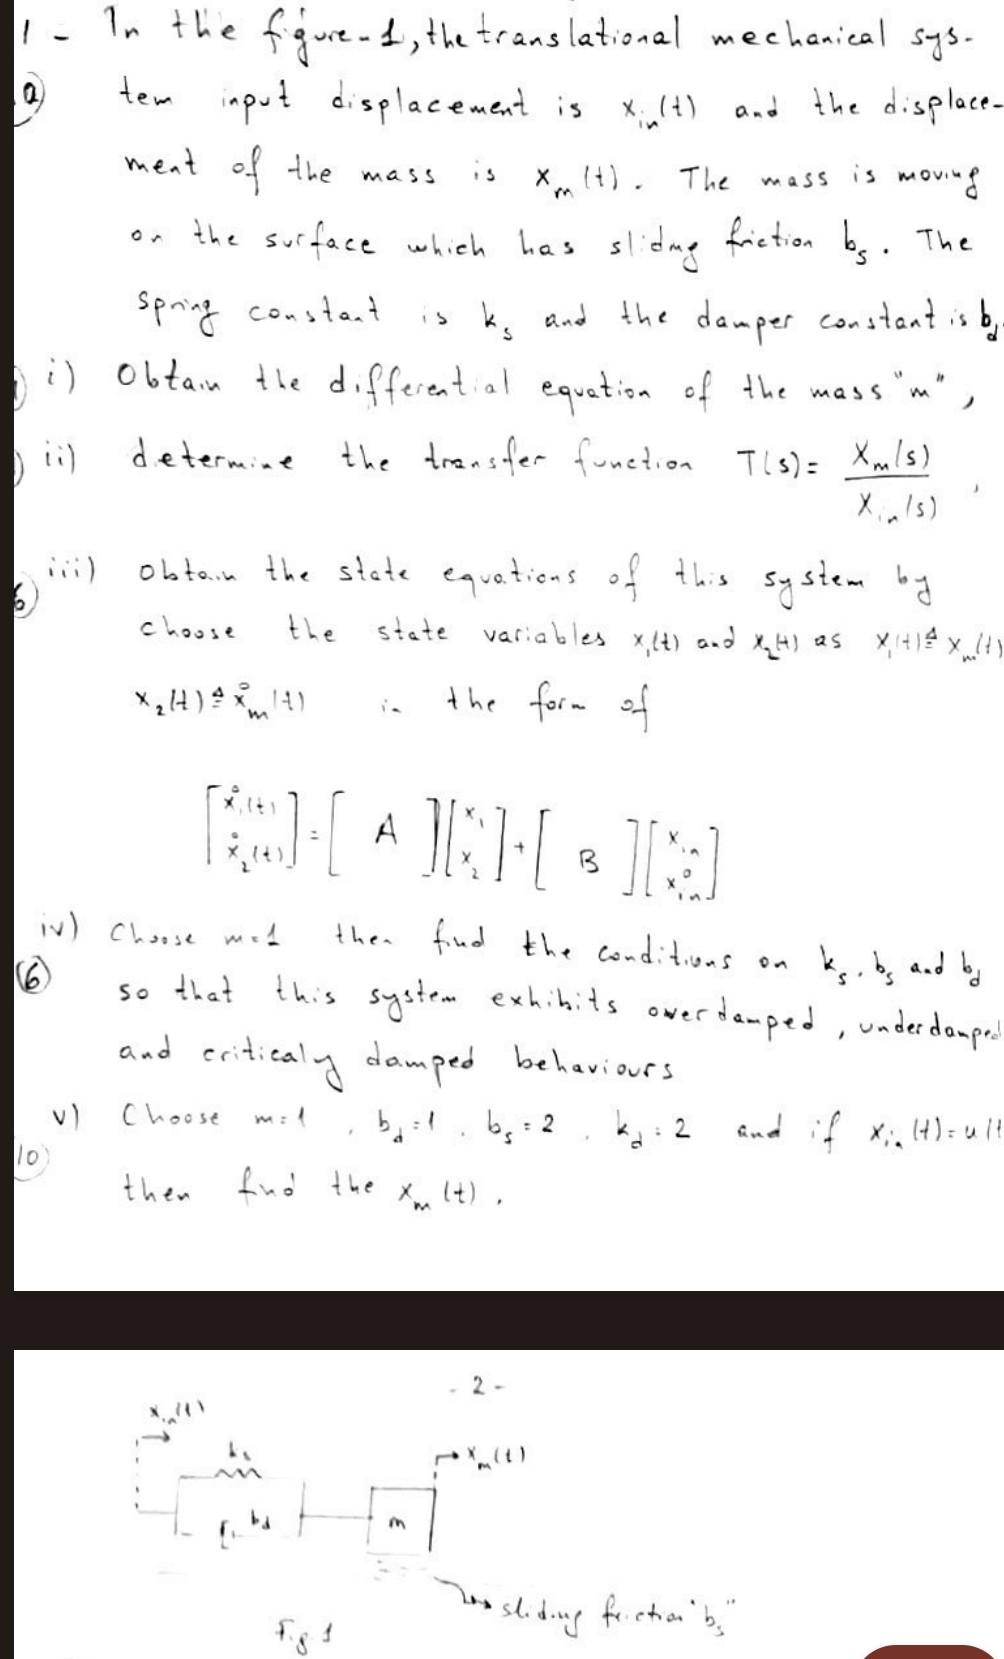 1 - In the figure-1, the translational mechanical sys-
a) tem input displacement is x_in(t) and the displace-
ment of the mass is x_m(t). The mass is moving
on the surface which has sliding friction b_s. The
spring constant is k_s and the damper constant is b_d.
i) Obtain the differential equation of the mass "m",
ii) determine the transfer function T(s) = X_m(s) / X_in(s),
iii) Obtain the state equations of this system by
6
choose the state variables x_1(t) and x_2(t) as x_1(t) ≜ x_m(t)
x_2(t) ≜ ẋ_m(t) in the form of
[ẋ_1(t) ẋ_2(t)] = [A][x_1 x_2] + [B][x_in ẋ_in]
iv) Choose m=1 then find the conditions on k_s, b_s and b_d
6 so that this system exhibits overdamped, underdamped
and criticaly damped behaviours
v) Choose m=1, b_d=1, b_s=2, k_d=2 and if x_in(t)=u(t
10 then find the x_m(t).
- 2 -
x_in(t)
k_s
x_m(t)
b_d
m
sliding friction "b_s"
Fig 1